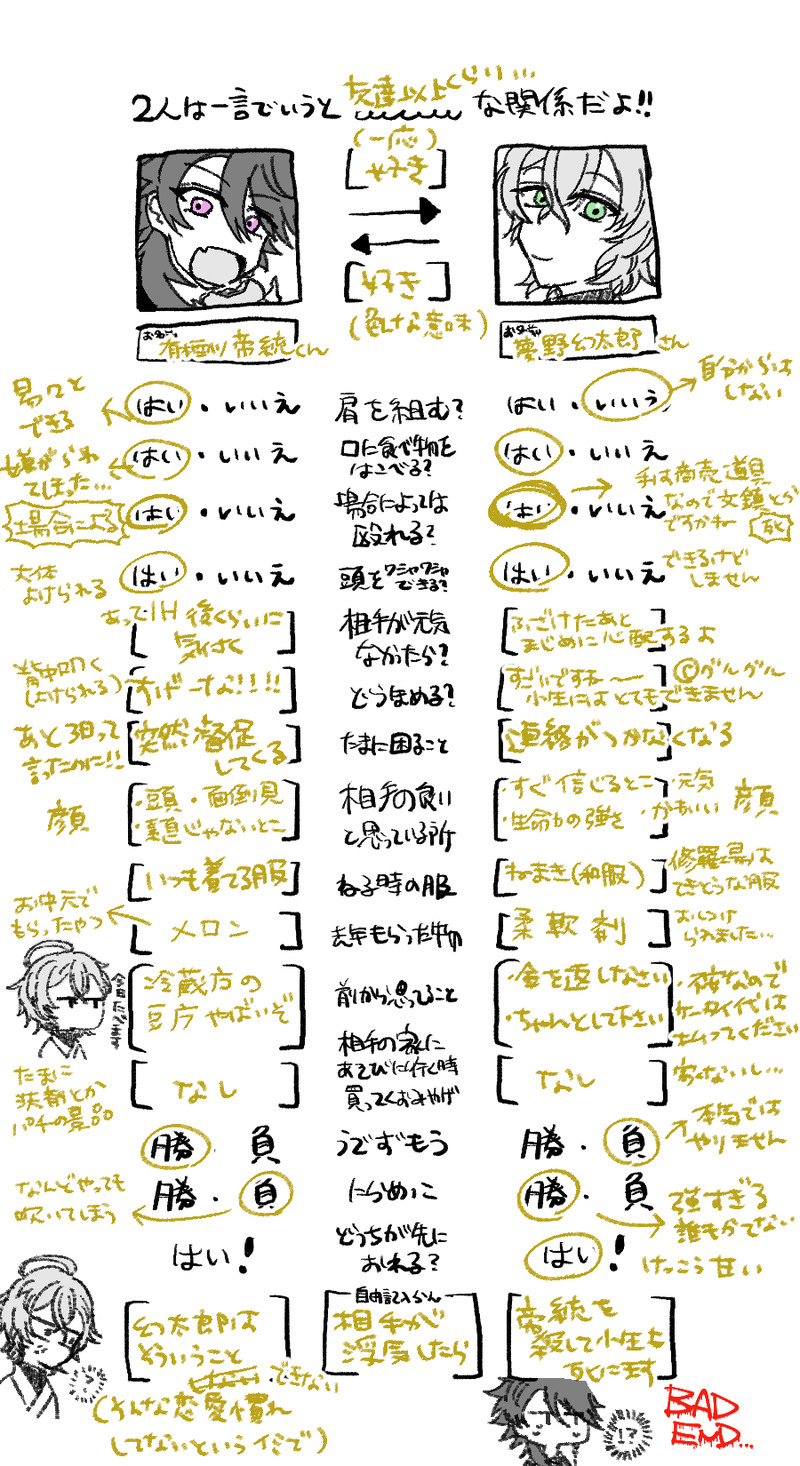 2人は一言でいうと友達以上くらい…な関係だよ!!
(一応)
好き
好き
(色んな意味)
お名前
有栖川 帝統くん
お名前
夢野幻太郎さん
易々と
できる
はい・いいえ
肩を組む?
はい・いいえ
自分からは
しない
嫌がられ
てしまった…
はい・いいえ
口に食べ物を
はこべる?
はい・いいえ
場合による
はい・いいえ
場合によっては
殴れる?
はい・いいえ
手は商売道具
なので文鎮とか
ですかね
死
大体
よけられる
はい・いいえ
頭をワシャワシャ
できる?
はい・いいえ
できるけど
しません
あって1H後くらいに
気付く
相手が元気
なかったら?
ふざけたあと
まじめに心配するよ
背中叩く
(よけられる)
すげーな!!!!
どうほめる?
すごいですね〜
小生にはとてもできません
©グルグル
あと3日って
言ったのに!!
突然督促
してくる
たまに困ること
連絡がつかなくなる
顔
・頭・面倒見
・真面目じゃないとこ
相手の良い
と思っている所
・すぐ信じるとこ・元気
・生命力の強さ・かわいい
顔
いつも着てる服
ねる時の服
ねまき(和服)
修羅場は
てきとうな服
お中元で
もらったやつ
メロン
去年もらった物
柔軟剤
おしつけ
られました…
冷蔵庫の
豆腐やばいぞ
前から思ってること
・金を返しなさい
・ちゃんとして下さい
・不便なので
ケータイ代は
払ってください
たまに
パチの景品
なし
相手の家に
あそびに行く時
買ってくおみやげ
なし
来ないし…
勝・負
うでずもう
勝・負
本気では
やりません
なんどやっても
吹いてしまう
勝・負
にらめっこ
勝・負
強すぎる
誰もかてない
はい!
どっちが先に
おれる?
はい!
けっこう甘い
幻太郎は
そういうこと
できない
(そんな恋愛慣れ
してないというイミで)
?
自由記入らん
相手が
浮気したら
帝統を
殺して小生も
死にます
!?
BAD
END...